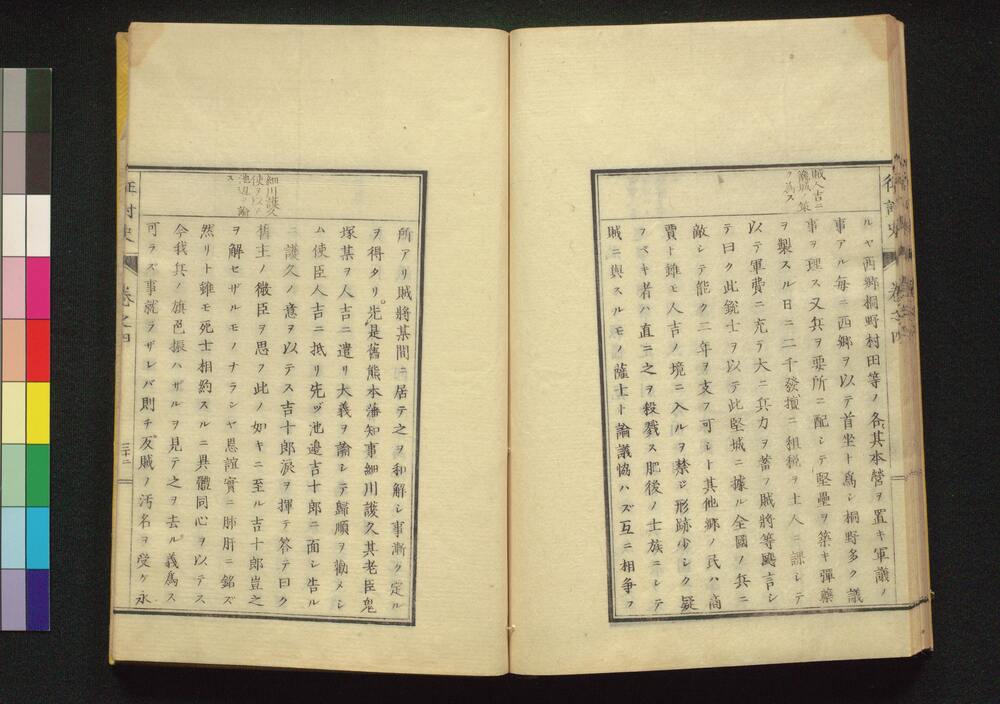 征討史
卷之四
賊人吉ニ
籠城ノ策
ヲ為ス
ルヤ西郷桐野村田等ノ各其本營ヲ置キ軍議ノ
事アル毎ニ西郷ヲ以テ首坐ト爲シ桐野多ク議
事ヲ理ス又兵ヲ要所ニ配シテ堅壘ヲ築キ彈藥
ヲ製スル日ニ二千發擅ニ租税ヲ土人ニ課シテ
以テ軍費ニ充テ大ニ兵力ヲ蓄フ賊將等颺言シ
テ曰ク此銃士ヲ以テ此堅城ニ據ル全國ノ兵ニ
敵シテ能ク二年ヲ支フ可シト其他郷ノ民ハ商
賈ト雖モ人吉ノ境ニ入ルヲ禁ジ形跡少シク疑
フベキ者ハ直ニ之ヲ殺戮ス肥後ノ士族ニシテ
賊ニ與スルモノ薩士ト論議協ハズ互ニ相爭フ
細川護久
使ヲ以テ
池辺ヲ諭
ス
所アリ賊將某間ニ居テ之ヲ和解シ事漸ク定ル
ヲ得タリ。先是舊熊本藩知事細川護久其老臣鬼
塚某ヲ人吉ニ遣リ大義ヲ諭シテ歸順ヲ勸メシ
ム使臣人吉ニ抵リ先ヅ池邊吉十郎ニ面シ告ル
ニ護久ノ意ヲ以テス吉十郎涙ヲ揮テ答テ曰ク
舊主ノ微臣ヲ思フ此ノ如キニ至ル吉十郎豈之
ヲ解セザルモノナランヤ恩誼實ニ肺肝ニ銘ズ
然リト雖モ死士相約スルニ異體同心ヲ以テス
今我兵ノ旗色振ハザルヲ見テ之ヲ去ル義爲ス
可ラズ事就ラザレバ則チ反賊ノ汚名ヲ受ケ永
征討史
卷之四
三十二